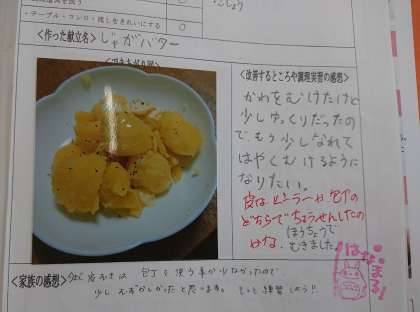 ・テーブル・コンロ・流しをきれいにする
○
・こしょう
<作った献立名>じゃがバター
<改善するところや調理実習の感想>
かわをむけたけど
少しゆっくりだったの
で、もう少しなれて
はやくむけるように
なりたい。
皮はピーラーや包丁の
どちらでちょうせんしたの
かな。
ほうちょうで
むきました
はなまる
<家族の感想>
皮むきは 包丁を使う事が少なかったので、
少しむずかしかったと思います。もっと練習しよう!!